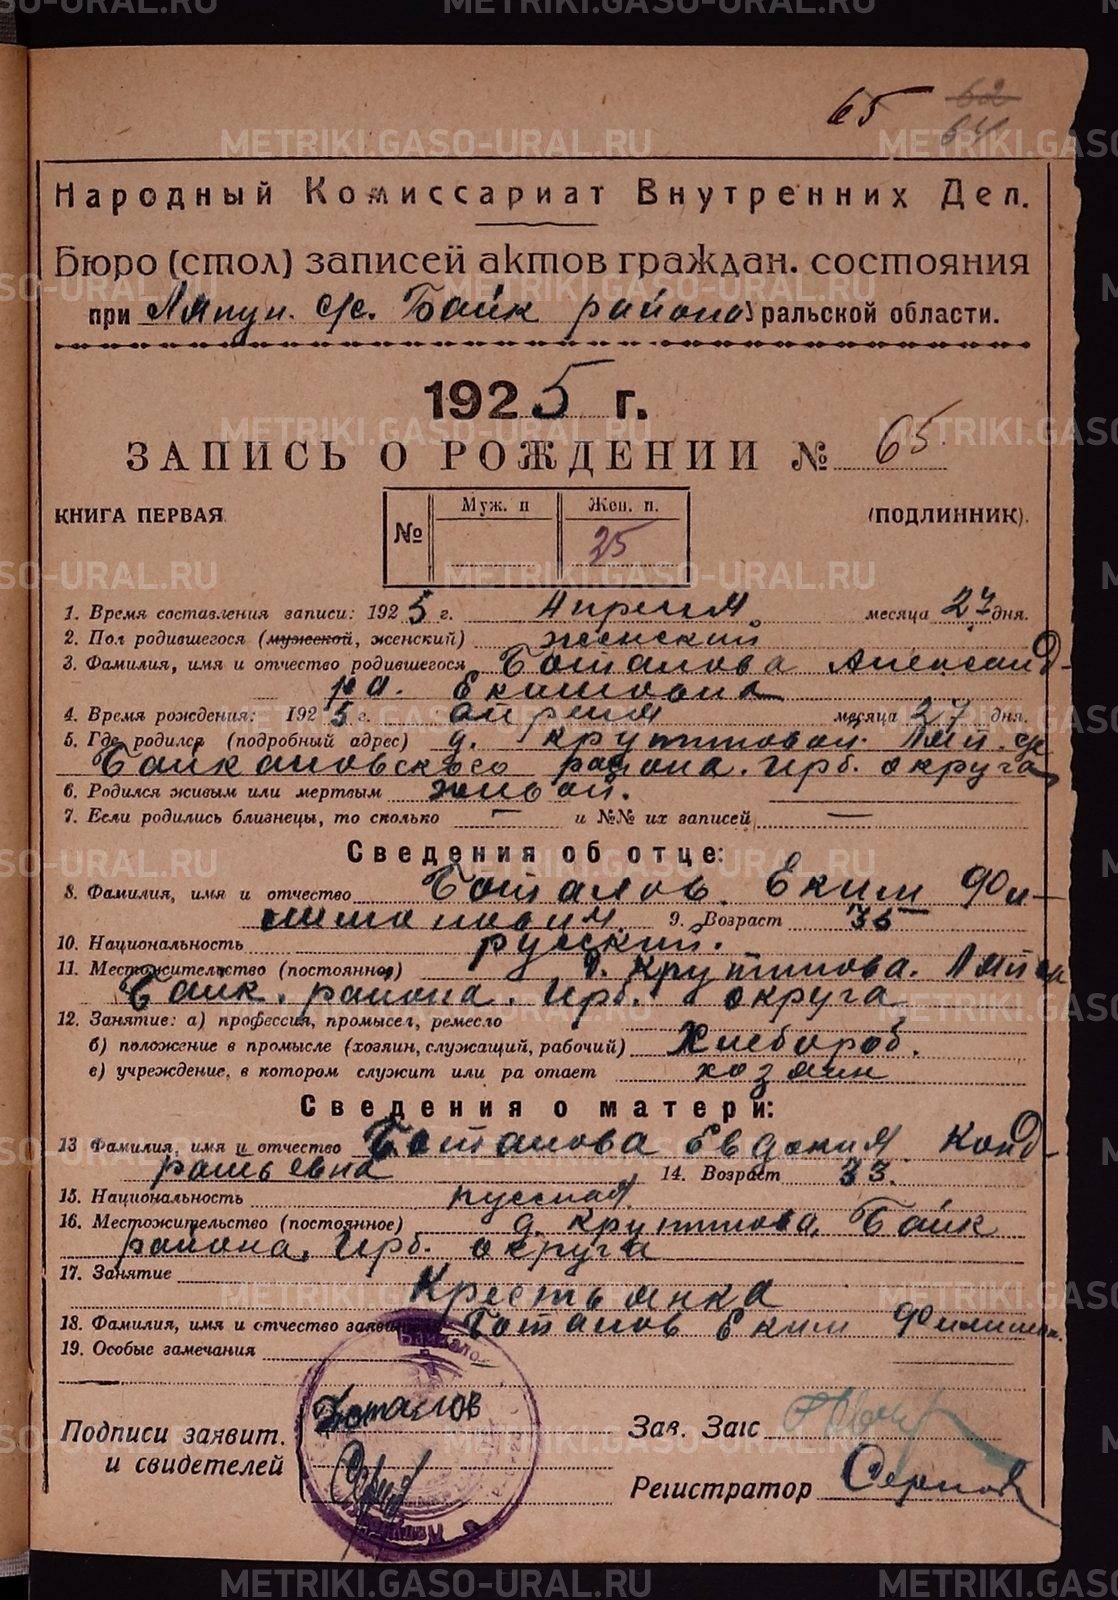 65 62
64
Народный Комиссариат Внутренних Дел.
Бюро (стол) записей актов граждан. состояния
при Ляпун. с/с. Байк района Уральской области.
1925 г.
ЗАПИСЬ О РОЖДЕНИИ № 65.
КНИГА ПЕРВАЯ (ПОДЛИННИК).
№ Муж. п Жен. п.
25
1. Время составления записи: 1925 г. Апреля месяца 27 дня.
2. Пол родившегося (мужской, женский) женский
3. Фамилия, имя и отчество родившегося Боталова Александ-
ра. Екимовна
4. Время рождения: 1925 г. апреля месяца 27 дня.
5. Где родился (подробный адрес) д. Круттовой. Ляп. с/с
Байкаловского района. Ирб. округа
6. Родился живым или мертвым живой.
7. Если родились близнецы, то сколько — и №№ их записей —
Сведения об отце:
8. Фамилия, имя и отчество Боталов. Еким Фи-
9. Возраст 35
10. Национальность русский.
11. Местожительство (постоянное) д. Круттова. Ляп с/с
Байк. района. Ирб. округа
12. Занятие: а) профессия, промысел, ремесло
б) положение в промысле (хозяин, служащий, рабочий) Хлебороб.
в) учреждение, в котором служит или ра отает хозяин
Сведения о матери:
13 Фамилия, имя и отчество Боталова Евдокия. Конд-
ратьевна 14. Возраст 33.
15. Национальность русская.
16. Местожительство (постоянное) д. Круттова, Байк
района, Ирб. округа
17. Занятие
Крестьянка
18. Фамилия, имя и отчество заяви Боталов Еким
19. Особые замечания
Подписи заявит. Боталов Зав. Загс
и свидетелей
Регистратор
METRIKI.GASO-URAL.RU